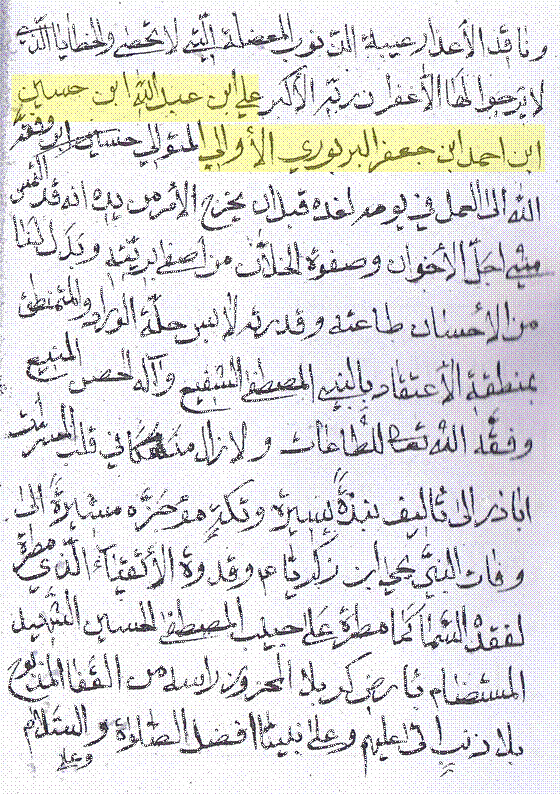 وناقد الأعذار عيبة الذنوب المعضلة التي لا تحصى والخطايا الذي
لا يرجوا لها الا غفران ربه الأكبر علي ابن عبد الله ابن حسين
ابن احمد ابن جعفر البربوري الأوالي المتوالي حسين ابن وفقه
الله الى العمل في يومه لغده قبل ان يخرج الأمر من يده انه قد التمس
مني اجل الأخوان وصفوة الخلان من اصفى بريته وبذل لنا
من الأحسان طاعته وقدرته لابس حلة الوراد والمتمنطق
بمنطقة الأعتقاد بالنبي المصطفى الشفيع وآله الحصن المنيع
وفقه الله تعا للطاعات ولا زال في قلب المسرات
ان اباذر الى تأليف نبذة يسيرة ونكتة موجزه مشيرة الى
وفات النبي يحيى ابن زكريا ع وقدوة الأتقياء الذي مطرة
لفقده السما كما مطرة على حبيب المصطفى الحسين الشهيد
المستضام بارض كربلا المحزوز راسه من القفا المذبوح
بلا ذنب اتى عليهم وعلى نبينا افضل الصلوة والسلام
وعلى